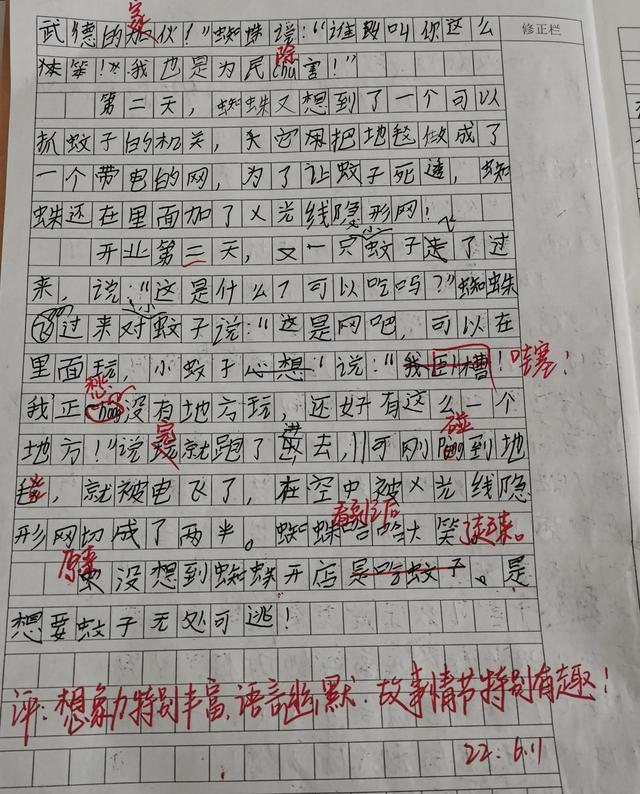 修正栏
家
武德的伙!"蜘蛛说:"谁叫你这么
除
体笨!"我也是为民chu害!"
第二天,蜘蛛又想到了一个可以
抓蚊子的机关,它用把地毯做成了
一个带电的网,为了让蚊子死透,蜘
蛛还在里面加了X光线隐形网!
飞
开业第二天,又一只蚊子走了过
来,说:"这是什么了可以吃吗?"蜘蛛
小
飞过来对蚊子说:"这是网吧,可以在
里面玩,小蚊子心想"说:"我卧槽!哇塞!
愁
我正chong没有地方玩,还好有这么一个
完 进 碰
地方!"说玩就跑了去,可刚peng到地
毯,就被电飞了,在空中被X光线隐
看到后
形网切成了两半。蜘蛛哈哈大笑了起来。
原来
没想到蜘蛛开店是吃蚊子。是
想要蚊子无处可逃!
评:想象力特别丰富,语言幽默,故事情节特别有趣!
22.6.11